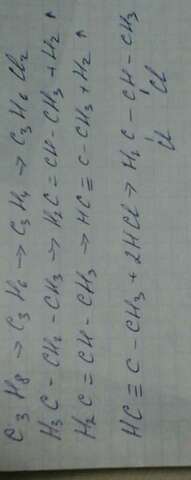 C₃H₈ → C₃H₆ → C₃H₄ → C₃H₆Cl₂
H₃C – CH₂ – CH₃ → H₂C = CH – CH₃ + H₂ ↑
H₂C = CH – CH₃ → HC ≡ C – CH₃ + H₂ ↑
HC ≡ C – CH₃ + 2HCl → H₂C – CH – CH₃
Cl Cl